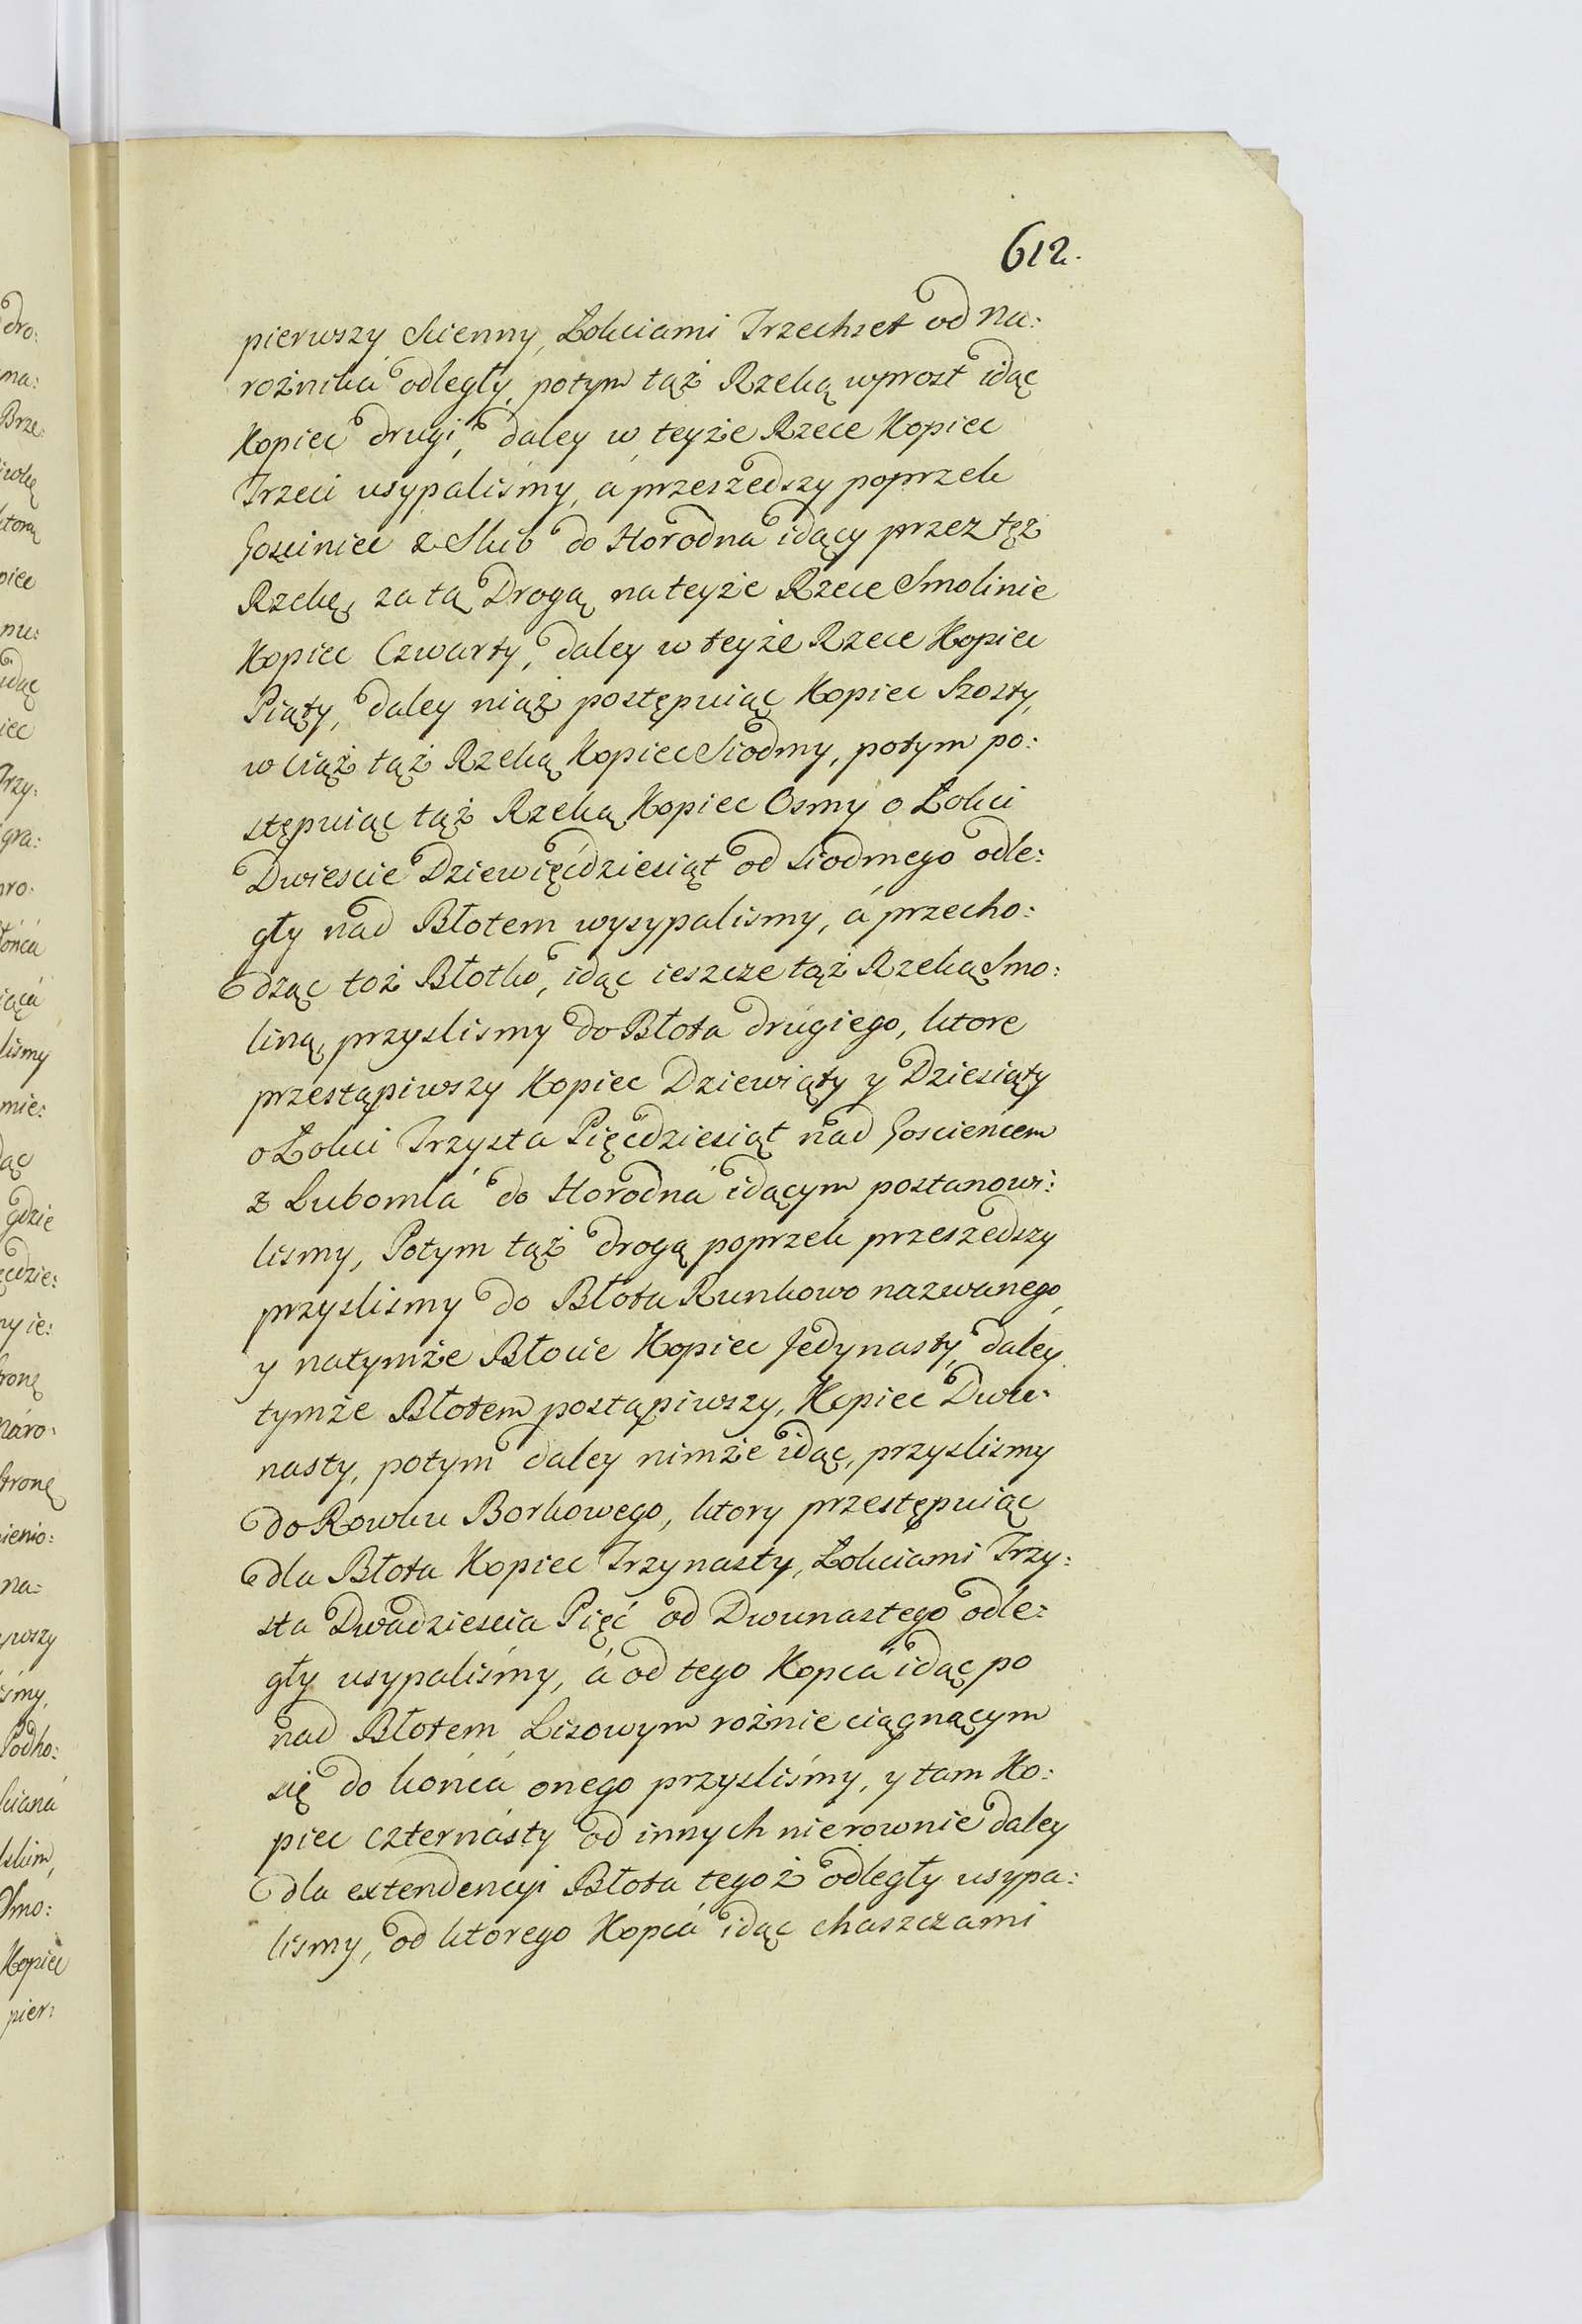 612.
pierwszy Scienny, Łokciami Trzechset od na:
rożniká odległy, potym tąż Rzeką wprost idąc
Kopiec drugi, daley w teyże Rzece Kopiec
Trzeci usypaliśmy, á przeszedszy poprzek
Gosciniec z Słub do Horodna idący przez tęż
Rzekę, za tą Drogą na teyże Rzece Smolinie
Kopiec Czwarty, daley w teyże Rzece Kopiec
Piąty, daley niąż postępuiąc Kopiec Szosty,
w ciąż tąż Rzeką Kopiec Siodmy, potym po:
stępuiąc tąż Rzeką Kopiec Osmy o Łokci
Dwiescie Dziewięćdziesiąt od siodmego odle:
gły nad Błotem wysypalismy, á przecho:
dząc toż Błotko, idąc ieszcze tąż Rzeką Smo:
liną, przyslismy do Błota drugiego, ktore
przestąpiwszy Kopiec Dziewiąty y Dziesiąty
o Łokci Trzysta Pięcdziesiąt nad Goscieńcem
z Lubomlá do Horodná idącym postanowi:
lismy, Potym tąż drogą poprzek przeszedszy
przyslismy do Błota Runkowo nazwanego,
y natymże Błocie Kopiec Jedynasty, daley
tymże Błotem postąpiwszy, Kopiec Dwu:
nasty, potym daley nimże idąc, przyslismy
do Rowku Borkowego, ktory przestępuiąc
dla Błota Kopiec Trzynasty, Łokciami Trzy:
sta Dwadziescia Pięć od Dwunastego odle:
gły usypaliśmy, á od tego Kopcá idąc po
nad Błotem Lisowym rożnie ciągnącym
się do końcá onego przysliśmy, y tam Ko:
piec czternásty od innych nierownie daley
dla extendencyi Błota tegoż odległy usypa:
lismy, od ktorego Kopcá idąc chaszczami